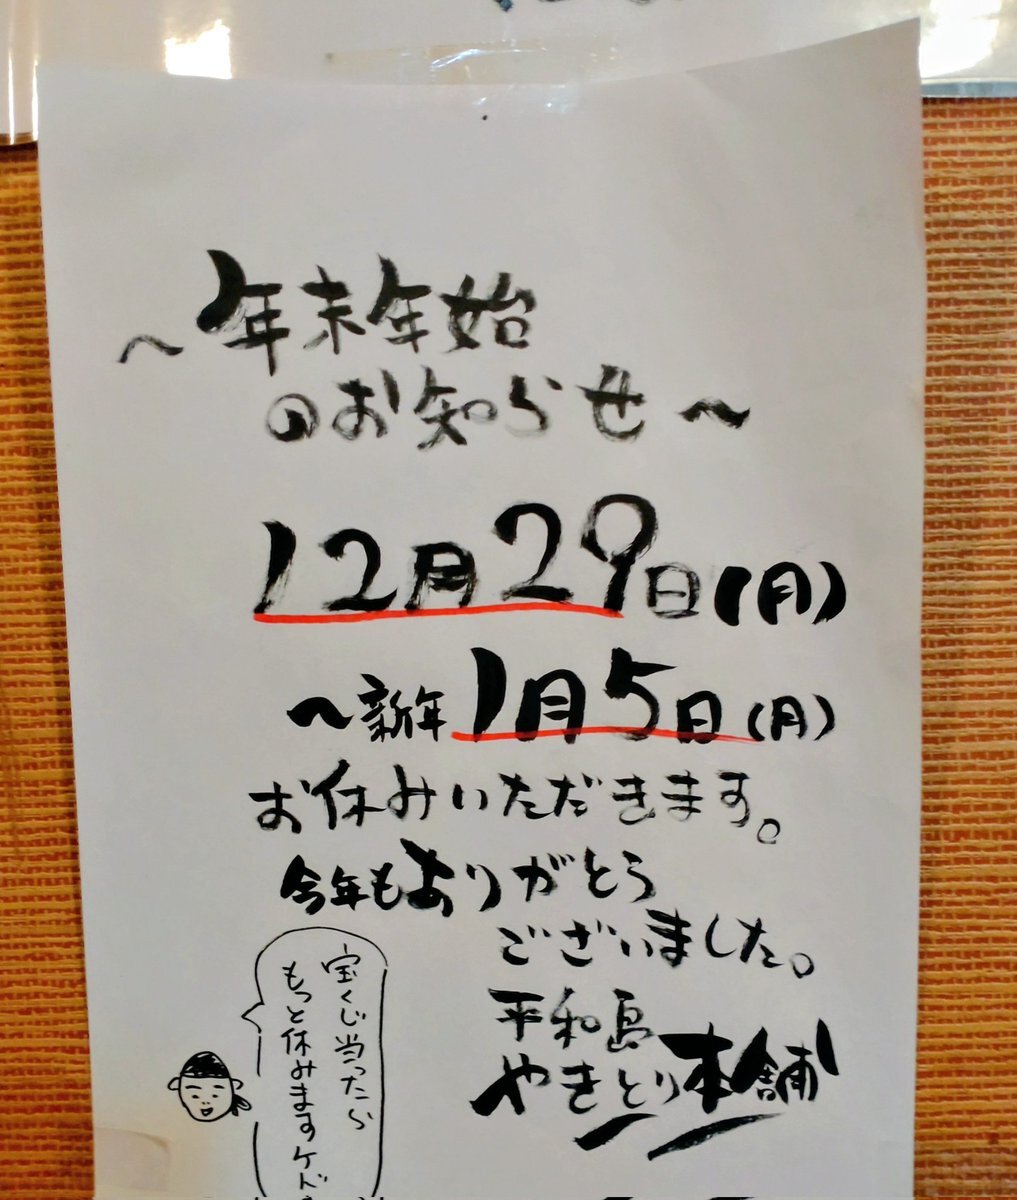 ～年末年始
のお知らせ～
12月29日(月)
～新年1月5日(月)
お休みいただきます。
今年もありがとう
ございました。
平和島
やきとり本舗
宝くじ当ったら
もっと休みますケド